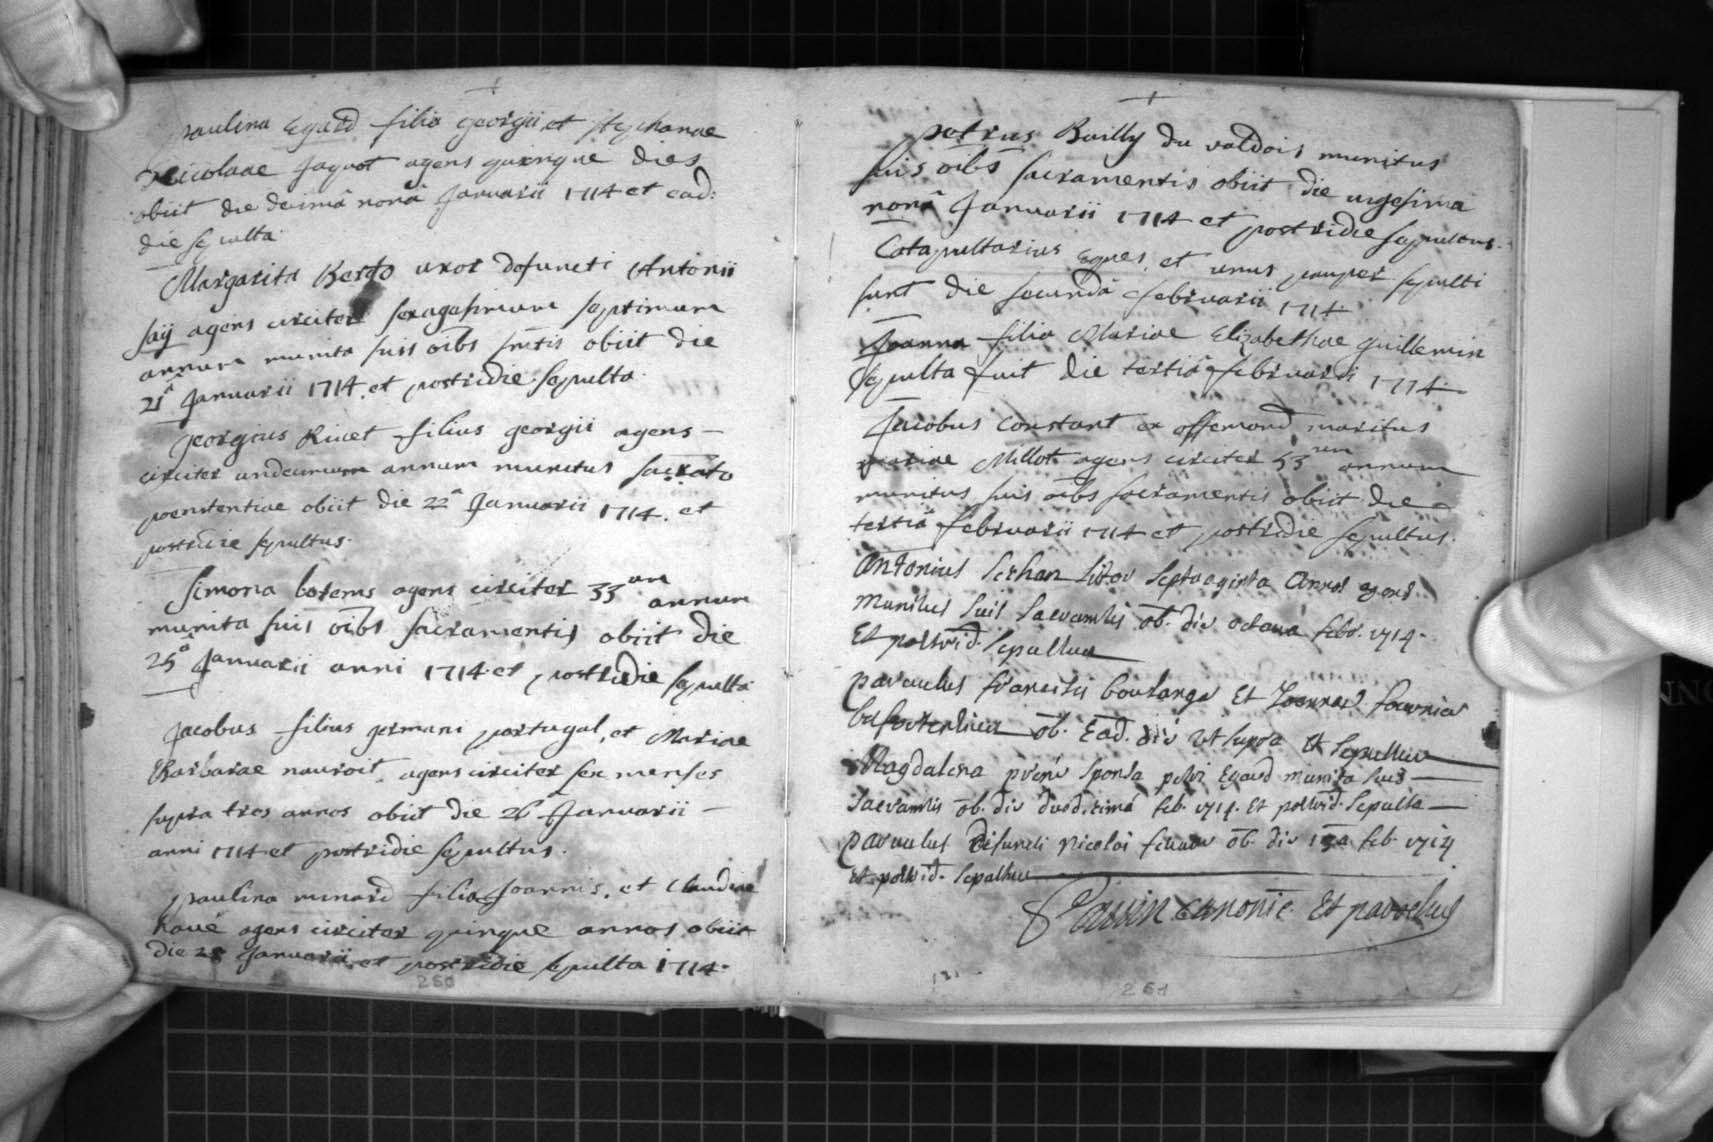 paulina Egard filia georgii et stephanae
Nicolaae Jaquot agens quinque dies
obiit die decimâ nonâ Januarii 1714 et ead:
die sepulta
Margarita Berdo uxor defuncti Antonii
saÿ agens circiter sexagesimum septimum
annum munita suis oibs smtis obiit die
21â Januarii 1714. et postridie sepulta.
georgius Riuet filius georgii agens -
circiter undecimum annum munitus sacrato
poenitentiae obiit die 22â Januarii 1714. et
postridie sepultus.
Simona botems agens circiter 33um annum
munita suis oibs sacramentis obiit die
25â Januarii anni 1714. et postridie sepulta
Jacobus filius germani portugal, et Mariae
Barbarae nauroit agens circiter sex menses
supra tres annos obiit die 26 Januarii -
anni 1714 et postridie sepultus.
paulina minard filia Joannis, et Claudiae
haue agens circiter quinque annos obiit
die 28 Januarii et postridie sepulta 1714.
260
petrus Bailly du valdois munitus
suis oibs sacramentis obiit die uigesima
nonâ Januarii 1714 et postridie sepultus.
Catapultarius eques et unus pauper sepulti
sunt die secundâ februarii 1714
Joanna filia Mariae Elizabethae guillemin
sepulta fuit die tertiâ februarii 1714.
Jacobus Constant ex offemond maritus
mariae Millot agens circiter 53um annum
munitus suis oibs sacramentis obiit die
tertiâ februarii 1714 et postridie sepultus.
Antonius septuaginta annos agens
Munitus suis sacramtis ob. die octauâ febr. 1714.
Et postrid. Sepultus
paruulus francisci boulange Et Joannae fournier
ob. Ead. die ut supra Et Sepultus
Magdalena sponsa petri Egard munita suis
sacramtis ob. die duodecimâ feb. 1714. Et postrid. Sepulta
paruulus defuncti Nicolai ob. die 13a feb. 1714
et postrid. Sepultus
canonic. Et parochus
121
261